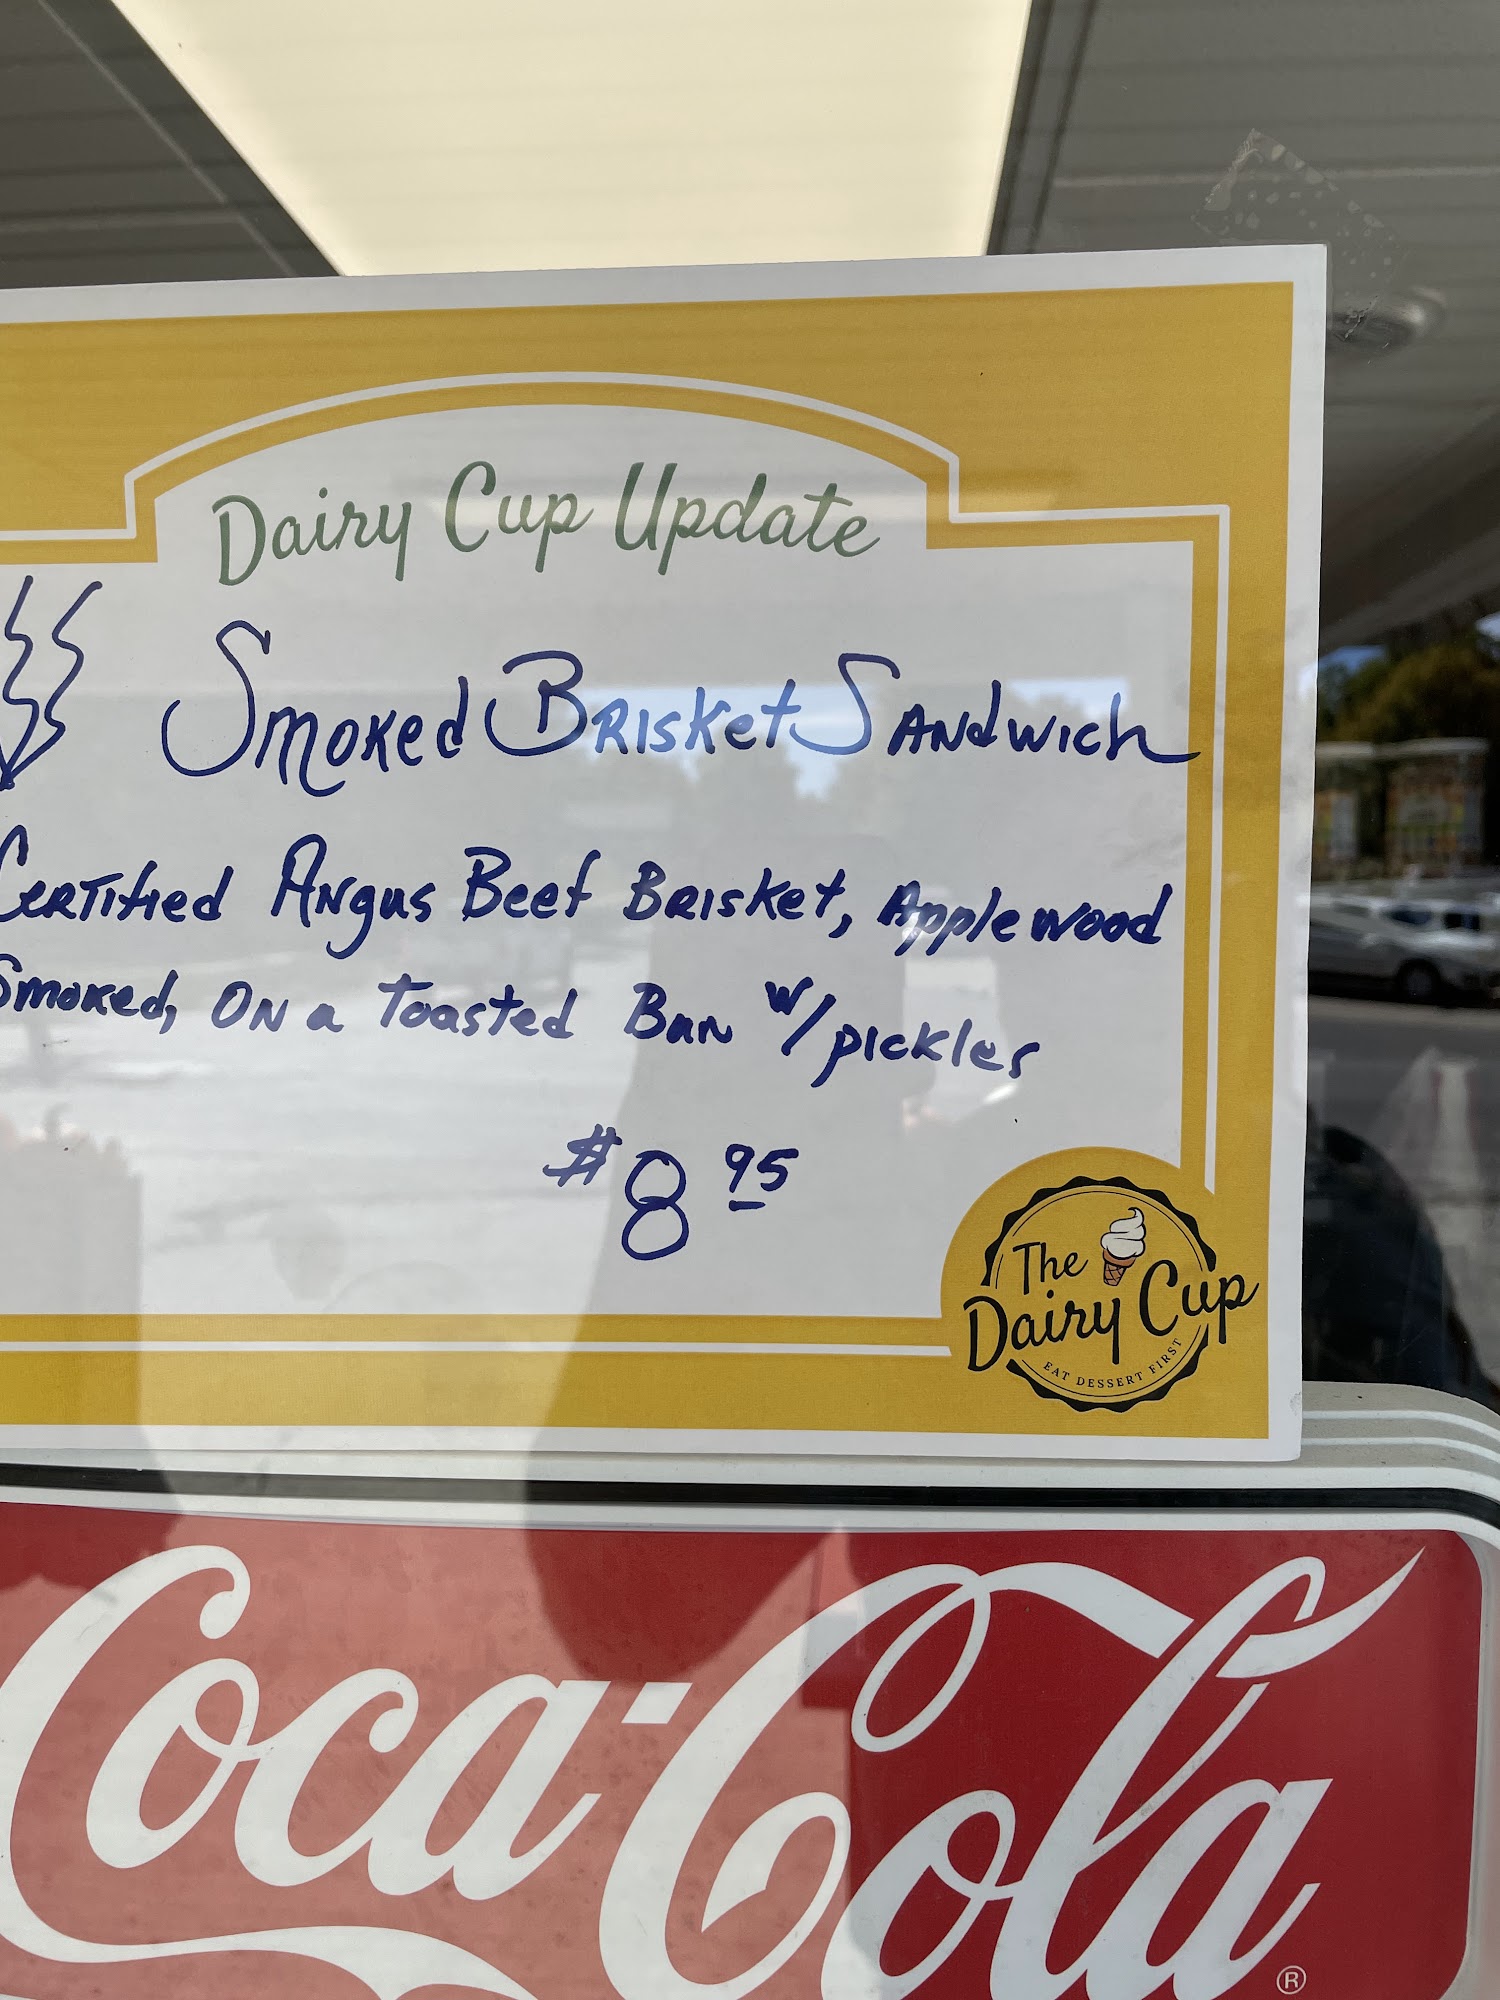 Dairy Cup Update
Smoked Brisket Sandwich
Certified Angus Beef Brisket, Applewood
Smoked, on a Toasted Bun w/pickles
$8 95
The
Dairy Cup
EAT DESSERT FIRST
Coca-Cola
®